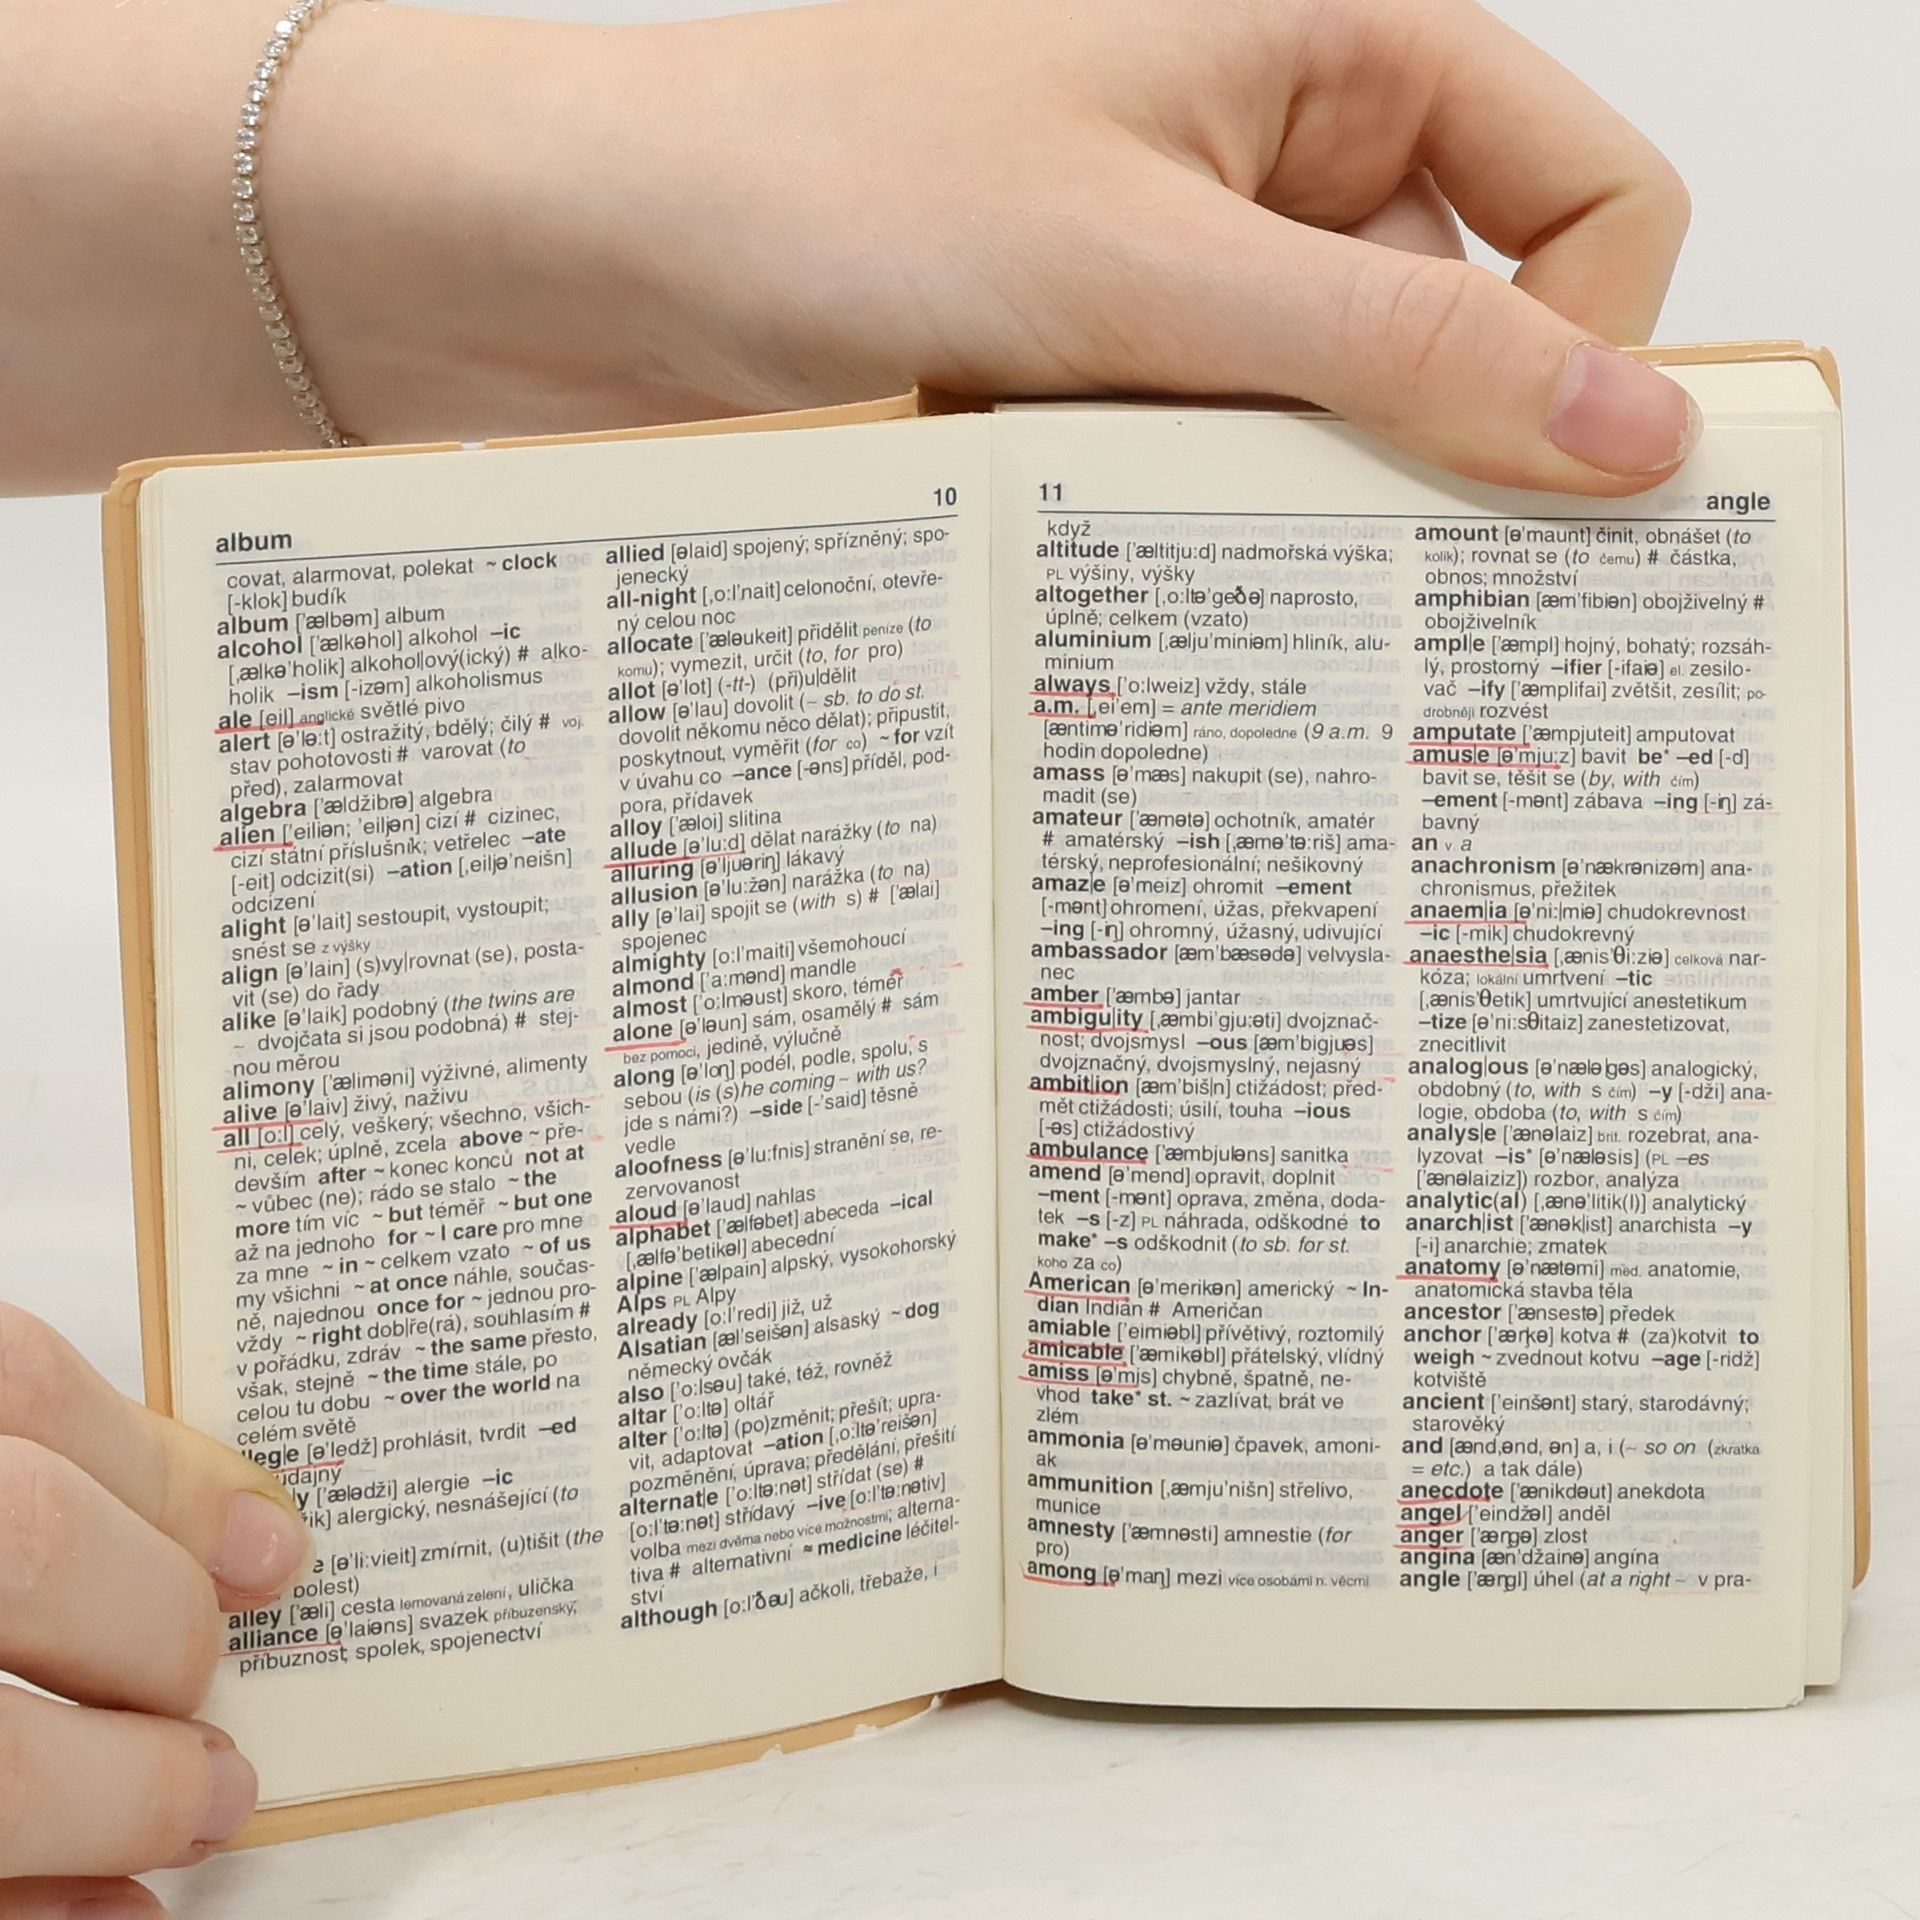 album
10
covat, alarmovat, polekat ~ clock
[-klok] budík
album ['ælbəm] album
alcohol ['ælkəhol] alkohol –ic
[ˌælkə'holik] alkohol|ový(ický) # alko-
holik –ism [-izəm] alkoholismus
ale [eil] anglické světlé pivo
alert [ə'lə:t] ostražitý, bdělý; čilý # voj.
stav pohotovosti # varovat (to
před), zalarmovat
algebra ['ældžibrə] algebra
alien ['eiliən; 'eiljən] cizí # cizinec,
cizí státní příslušník; vetřelec –ate
[-eit] odcizit(si) –ation [ˌeiljə'neišn]
odcizení
alight [ə'lait] sestoupit, vystoupit;
snést se z výšky
align [ə'lain] (s)vy|rovnat (se), posta-
vit (se) do řady
alike [ə'laik] podobný (the twins are
~ dvojčata si jsou podobná) # stej-
nou měrou
alimony ['æliməni] výživné, alimenty
alive [ə'laiv] živý, naživu
all [o:l] celý, veškerý; všechno, všich-
ni, celek; úplně, zcela above ~ pře-
devším after ~ konec konců not at
~ vůbec (ne); rádo se stalo ~ the
more tím víc ~ but téměř ~ but one
až na jednoho for ~ I care pro mne
za mne ~ in ~ celkem vzato ~ of us
my všichni ~ at once náhle, součas-
ně, najednou once for ~ jednou pro-
vždy ~ right dob|ře(rá), souhlasím #
v pořádku, zdráv ~ the same přesto,
však, stejně ~ the time stále, po
celou tu dobu ~ over the world na
celém světě
lleg|e [ə'ledž] prohlásit, tvrdit –ed
údajný
y ['ælədži] alergie –ic
ik] alergický, nesnášející (to
e [ə'li:vieit] zmírnit, (u)tišit (the
bolest)
alley ['æli] cesta lemovaná zelení, ulička
alliance [ə'laiəns] svazek příbuzenský;
příbuznost, spolek, spojenectví
allied [əlaid] spojený; spřízněný; spo-
jenecký
all-night [ˌo:l'nait] celonoční, otevře-
ný celou noc
allocate ['æləukeit] přidělit peníze (to
komu); vymezit, určit (to, for pro)
allot [ə'lot] (-tt-) (při)u|dělit
allow [ə'lau] dovolit (~ sb. to do st.
dovolit někomu něco dělat); připustit,
poskytnout, vyměřit (for co) ~ for vzít
v úvahu co –ance [-əns] příděl, pod-
pora, přídavek
alloy ['æloi] slitina
allude [ə'lu:d] dělat narážky (to na)
alluring [ə'ljuəriŋ] lákavý
allusion [ə'lu:žən] narážka (to na)
ally [ə'lai] spojit se (with s) # ['ælai]
spojenec
almighty [o:l'maiti] všemohoucí
almond ['a:mənd] mandle
almost ['o:lməust] skoro, téměř
alone [ə'ləun] sám, osamělý # sám
bez pomoci, jedině, výlučně
along [ə'loŋ] podél, podle, spolu, s
sebou (is (s)he coming ~ with us?
jde s námi?) –side [-'said] těsně
vedle
aloofness [ə'lu:fnis] stranění se, re-
zervovanost
aloud [ə'laud] nahlas
alphabet ['ælfəbet] abeceda –ical
[ˌælfə'betikəl] abecední
alpine ['ælpain] alpský, vysokohorský
Alps PL Alpy
already [o:l'redi] již, už
Alsatian [æl'seišən] alsaský ~ dog
německý ovčák
also ['o:lsəu] také, též, rovněž
altar ['o:ltə] oltář
alter ['o:ltə] (po)změnit; přešít; upra-
vit, adaptovat –ation [ˌo:ltə'reišən]
pozměnění, úprava; předělání, přešití
alternat|e ['o:ltə:nət] střídat (se) #
[o:l'tə:nət] střídavý –ive [o:l'tə:nətiv]
volba mezi dvěma nebo více možnostmi; alterna-
tiva # alternativní ≈ medicine léčitel-
ství
although [o:l'ðəu] ačkoli, třebaže, i
11
angle
když
altitude ['æltitju:d] nadmořská výška;
PL výšiny, výšky
altogether [ˌo:ltə'geðə] naprosto,
úplně; celkem (vzato)
aluminium [ˌælju'miniəm] hliník, alu-
minium
always ['o:lweiz] vždy, stále
a.m. [ˌei'em] = ante meridiem
[æntimə'ridiəm] ráno, dopoledne (9 a.m. 9
hodin dopoledne)
amass [ə'mæs] nakupit (se), nahro-
madit (se)
amateur ['æmətə] ochotník, amatér
# amatérský –ish [ˌæmə'tə:riš] ama-
térský, neprofesionální; nešikovný
amaz|e [ə'meiz] ohromit –ement
[-mənt] ohromení, úžas, překvapení
–ing [-iŋ] ohromný, úžasný, udivující
ambassador [æm'bæsədə] velvysla-
nec
amber ['æmbə] jantar
ambigu|ity [ˌæmbi'gju:əti] dvojznač-
nost; dvojsmysl –ous [æm'bigjuəs]
dvojznačný, dvojsmyslný, nejasný
ambit|ion [æm'biš|n] ctižádost; před-
mět ctižádosti; úsilí, touha –ious
[-əs] ctižádostivý
ambulance ['æmbjuləns] sanitka
amend [ə'mend] opravit, doplnit
–ment [-mənt] oprava, změna, doda-
tek –s [-z] PL náhrada, odškodné to
make* –s odškodnit (to sb. for st.
koho za co)
American [ə'merikən] americký ~ In-
dian Indián # Američan
amiable ['eimiəbl] přívětivý, roztomilý
amicable ['æmikəbl] přátelský, vlídný
amiss [ə'mis] chybně, špatně, ne-
vhod take* st. ~ zazlívat, brát ve
zlém
ammonia [ə'məuniə] čpavek, amoni-
ak
ammunition [ˌæmju'nišn] střelivo,
munice
amnesty ['æmnəsti] amnestie (for
pro)
among [ə'maŋ] mezi více osobami n. věcmi
amount [ə'maunt] činit, obnášet (to
kolik); rovnat se (to čemu) # částka,
obnos; množství
amphibian [æm'fibiən] obojživelný #
obojživelník
ampl|e [æmpl] hojný, bohatý; rozsáh-
lý, prostorný –ifier [-ifaiə] el. zesilo-
vač –ify ['æmplifai] zvětšit, zesílit; po-
drobněji rozvést
amputate ['æmpjuteit] amputovat
amus|e [ə'mju:z] bavit be* –ed [-d]
bavit se, těšit se (by, with čím)
–ement [-mənt] zábava –ing [-iŋ] zá-
bavný
an v. a
anachronism [ə'nækrənizəm] ana-
chronismus, přežitek
anaem|ia [ə'ni:|miə] chudokrevnost
–ic [-mik] chudokrevný
anaesthe|sia [ˌænis'θi:ziə] celková nar-
kóza; lokální umrtvení –tic
[ˌænis'θetik] umrtvující anestetikum
–tize [ə'ni:sθitaiz] zanestetizovat,
znecitlivit
analog|ous [ə'nælə|gəs] analogický,
obdobný (to, with s čím) –y [-dži] ana-
logie, obdoba (to, with s čím)
analys|e ['ænəlaiz] brit. rozebrat, ana-
lyzovat –is* [ə'næləsis] (PL –es
['ænəlaiziz]) rozbor, analýza
analytic(al) [ˌænə'litik(l)] analytický
anarch|ist ['ænək|ist] anarchista –y
[-i] anarchie; zmatek
anatomy [ə'nætəmi] med. anatomie,
anatomická stavba těla
ancestor ['ænsestə] předek
anchor ['æŋkə] kotva # (za)kotvit to
weigh ~ zvednout kotvu –age [-ridž]
kotviště
ancient ['einšənt] starý, starodávný;
starověký
and [ænd,ənd, ən] a, i (~ so on (zkratka
= etc.) a tak dále)
anecdote ['ænikdəut] anekdota
angel ['eindžəl] anděl
anger ['æŋgə] zlost
angina [æn'džainə] angína
angle ['æŋgl] úhel (at a right ~ v pra-